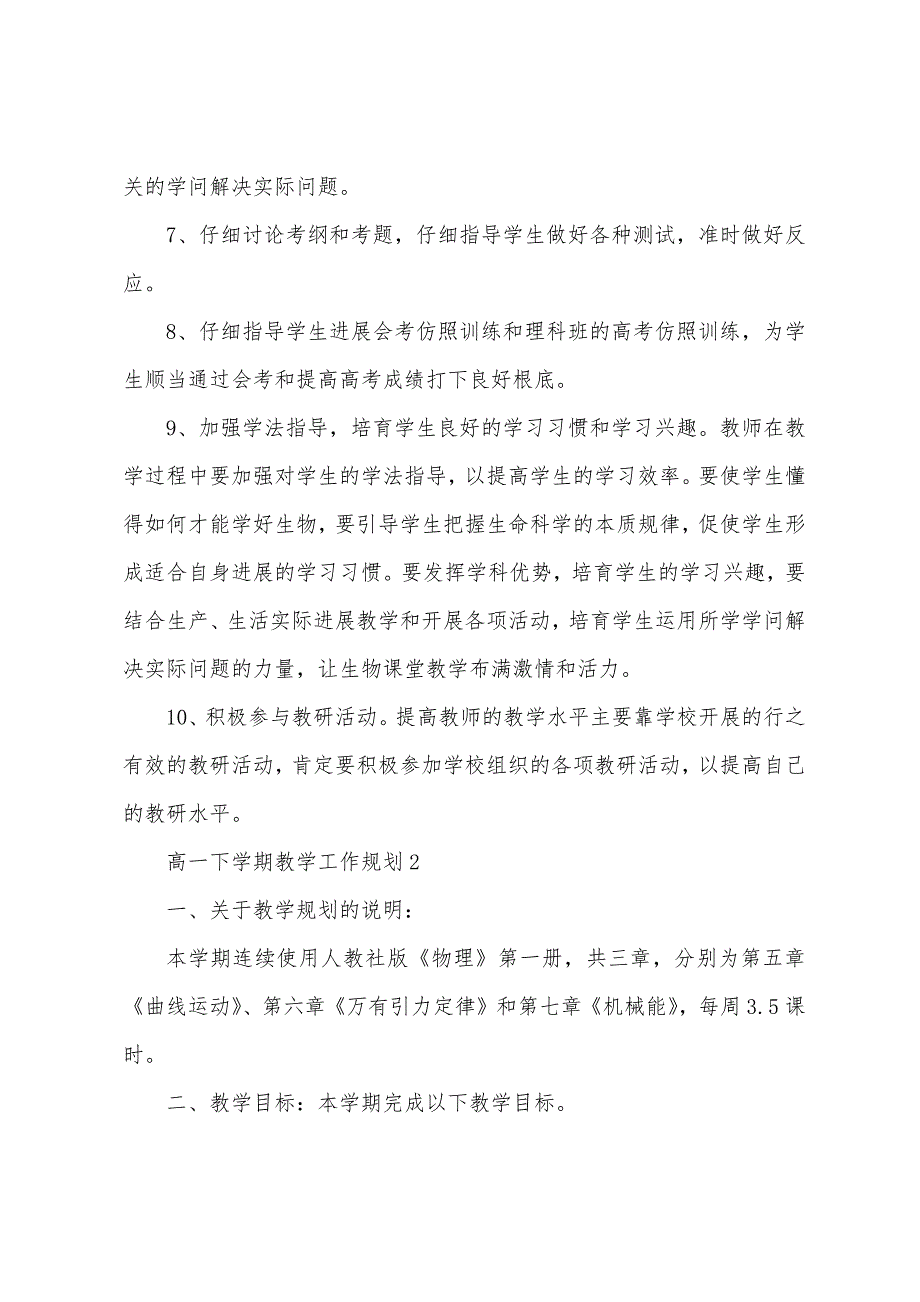 关的学问解决实际问题。
7、仔细讨论考纲和考题，仔细指导学生做好各种测试，准时做好反
应。
8、仔细指导学生进展会考仿照训练和理科班的高考仿照训练，为学
生顺当通过会考和提高高考成绩打下良好根底。
9、加强学法指导，培育学生良好的学习习惯和学习兴趣。教师在教
学过程中要加强对学生的学法指导，以提高学生的学习效率。要使学生懂
得如何才能学好生物，要引导学生把握生命科学的本质规律，促使学生形
成适合自身进展的学习习惯。要发挥学科优势，培育学生的学习兴趣，要
结合生产、生活实际进展教学和开展各项活动，培育学生运用所学学问解
决实际问题的力量，让生物课堂教学布满激情和活力。
10、积极参与教研活动。提高教师的教学水平主要靠学校开展的行之
有效的教研活动，肯定要积极参加学校组织的各项教研活动，以提高自己
的教研水平。
高一下学期教学工作规划2
一、关于教学规划的说明：
本学期连续使用人教社版《物理》第一册，共三章，分别为第五章
《曲线运动》、第六章《万有引力定律》和第七章《机械能》，每周3.5课
时。
二、教学目标：本学期完成以下教学目标。